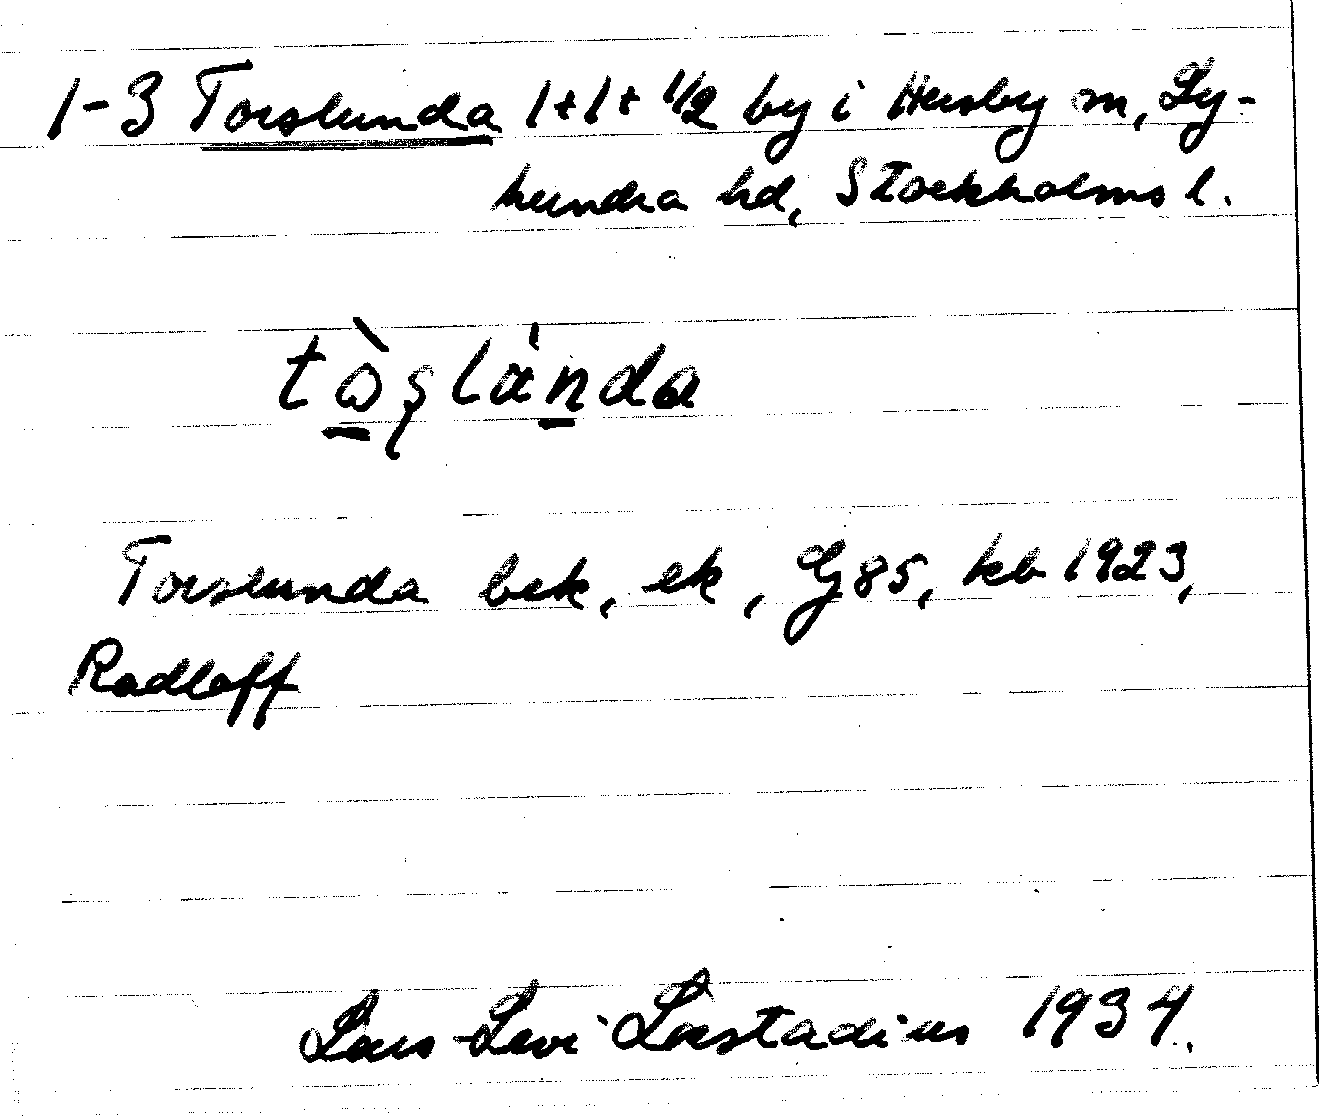 1-3 Torslunda 1+1+1/2 by i Husby sn, Ly-
hundra hd, Stockholms l.
tòs̨lánda
Torslunda bek, ek, Gj85, kb 1923,
Radloff
Lars-Levi Læstadius 1934.